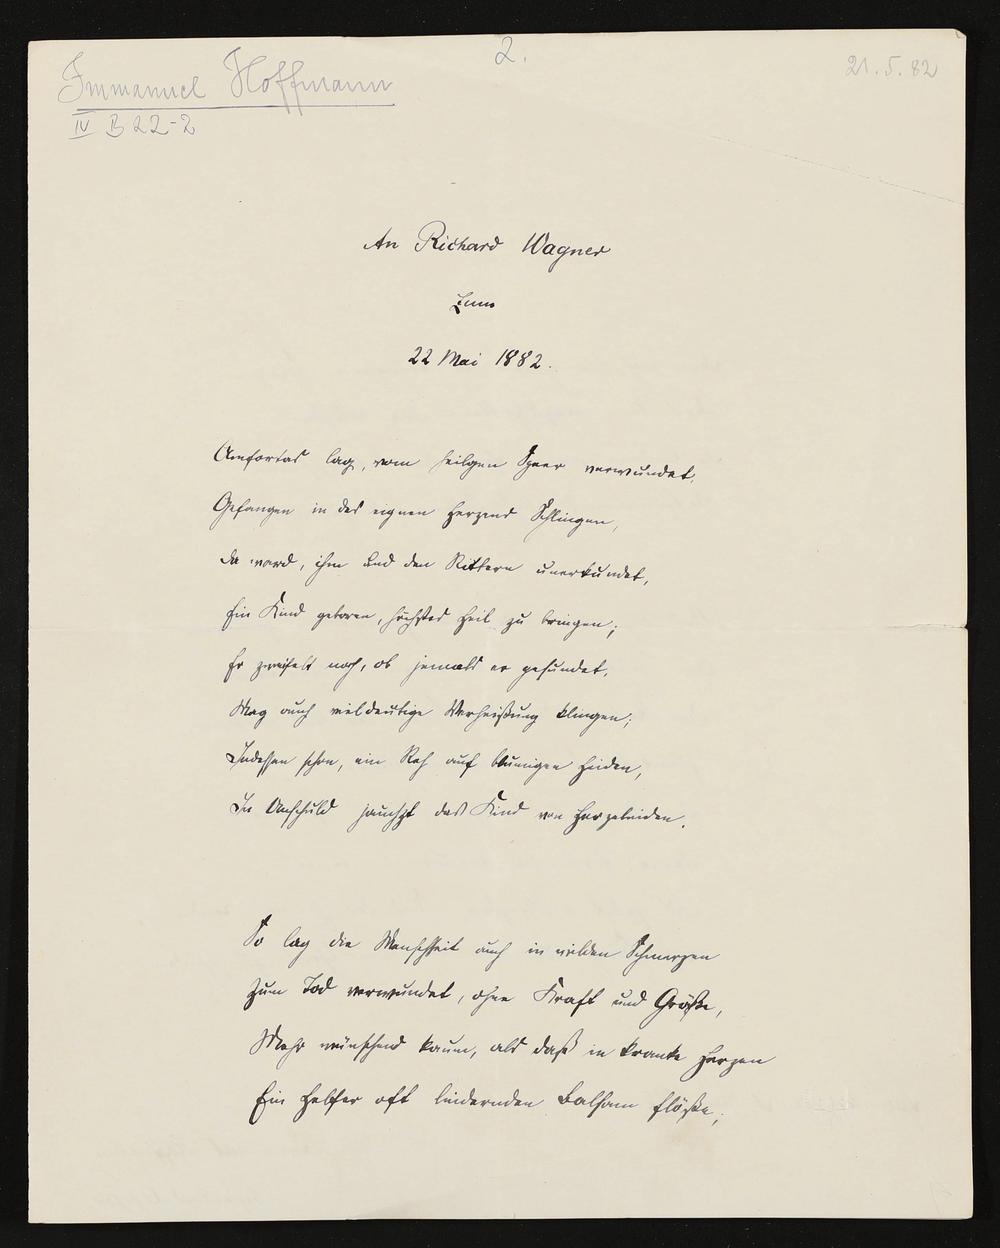 Immanuel Hoffmann
2.
21.5.82
IV B 22-2
An Richard Wagner
Zum
22 Mai 1882.
Amfortas lag, vom heilgen Speer verwundet,
Gefangen in des eignen Herzens Schlingen,
Da ward, ihm und den Rittern unerkundet,
Ein Kind geboren, höchstes Heil zu bringen;
Er zweifelt noch, ob jemals er gesundet,
Mag auch vieldeutige Verheißung klingen;
Indessen schon, ein Reh auf blumigen Heiden,
In Unschuld jauchzt das Kind von Herzeleiden.
So lag die Menschheit auch in wilden Schmerzen
Zum Tod verwundet, ohne Kraft und Größe,
Mehr wünschend kaum, als daß in kranke Herzen
Ein Helfer oft lindernden Balsam flöße;